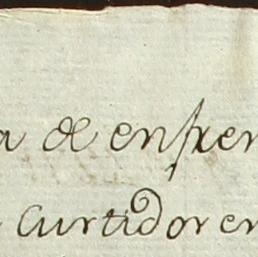 a de enfren
curtidor en